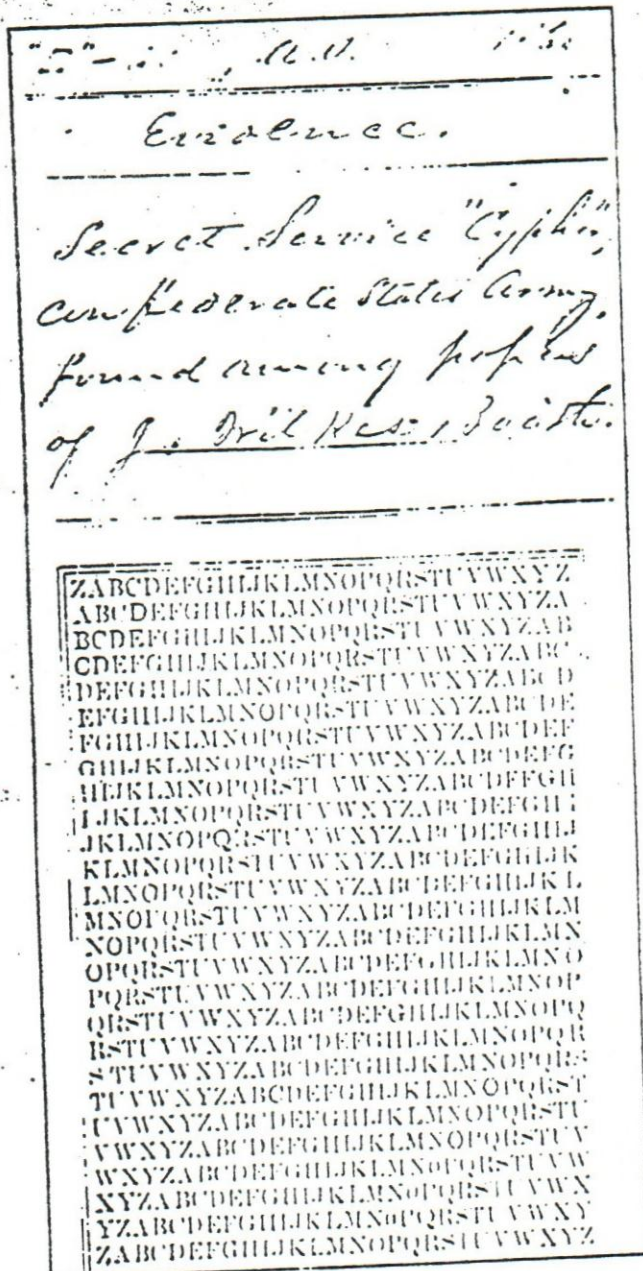 Evidence.
Secret Service "Cypher",
Confederate States Army,
found among papers
of J. Wilkes Booth.
ZABCDEFGHIJKLMNOPQRSTUVWXYZ
ABCDEFGHIJKLMNOPQRSTUVWXYZA
BCDEFGHIJKLMNOPQRSTUVWXYZAB
CDEFGHIJKLMNOPQRSTUVWXYZABC
DEFGHIJKLMNOPQRSTUVWXYZABCD
EFGHIJKLMNOPQRSTUVWXYZABCDE
FGHIJKLMNOPQRSTUVWXYZABCDEF
GHIJKLMNOPQRSTUVWXYZABCDEFG
HIJKLMNOPQRSTUVWXYZABCDEFGH
IJKLMNOPQRSTUVWXYZABCDEFGHI
JKLMNOPQRSTUVWXYZABCDEFGHIJ
KLMNOPQRSTUVWXYZABCDEFGHIJK
LMNOPQRSTUVWXYZABCDEFGHIJKL
MNOPQRSTUVWXYZABCDEFGHIJKLM
NOPQRSTUVWXYZABCDEFGHIJKLMN
OPQRSTUVWXYZABCDEFGHIJKLMNO
PQRSTUVWXYZABCDEFGHIJKLMNOP
QRSTUVWXYZABCDEFGHIJKLMNOPQ
RSTUVWXYZABCDEFGHIJKLMNOPQR
STUVWXYZABCDEFGHIJKLMNOPQRS
TUVWXYZABCDEFGHIJKLMNOPQRST
UVWXYZABCDEFGHIJKLMNOPQRSTU
VWXYZABCDEFGHIJKLMNOPQRSTUV
WXYZABCDEFGHIJKLMNOPQRSTUVW
XYZABCDEFGHIJKLMNOPQRSTUVWX
YZABCDEFGHIJKLMNOPQRSTUVWXY
ZABCDEFGHIJKLMNOPQRSTUVWXYZ